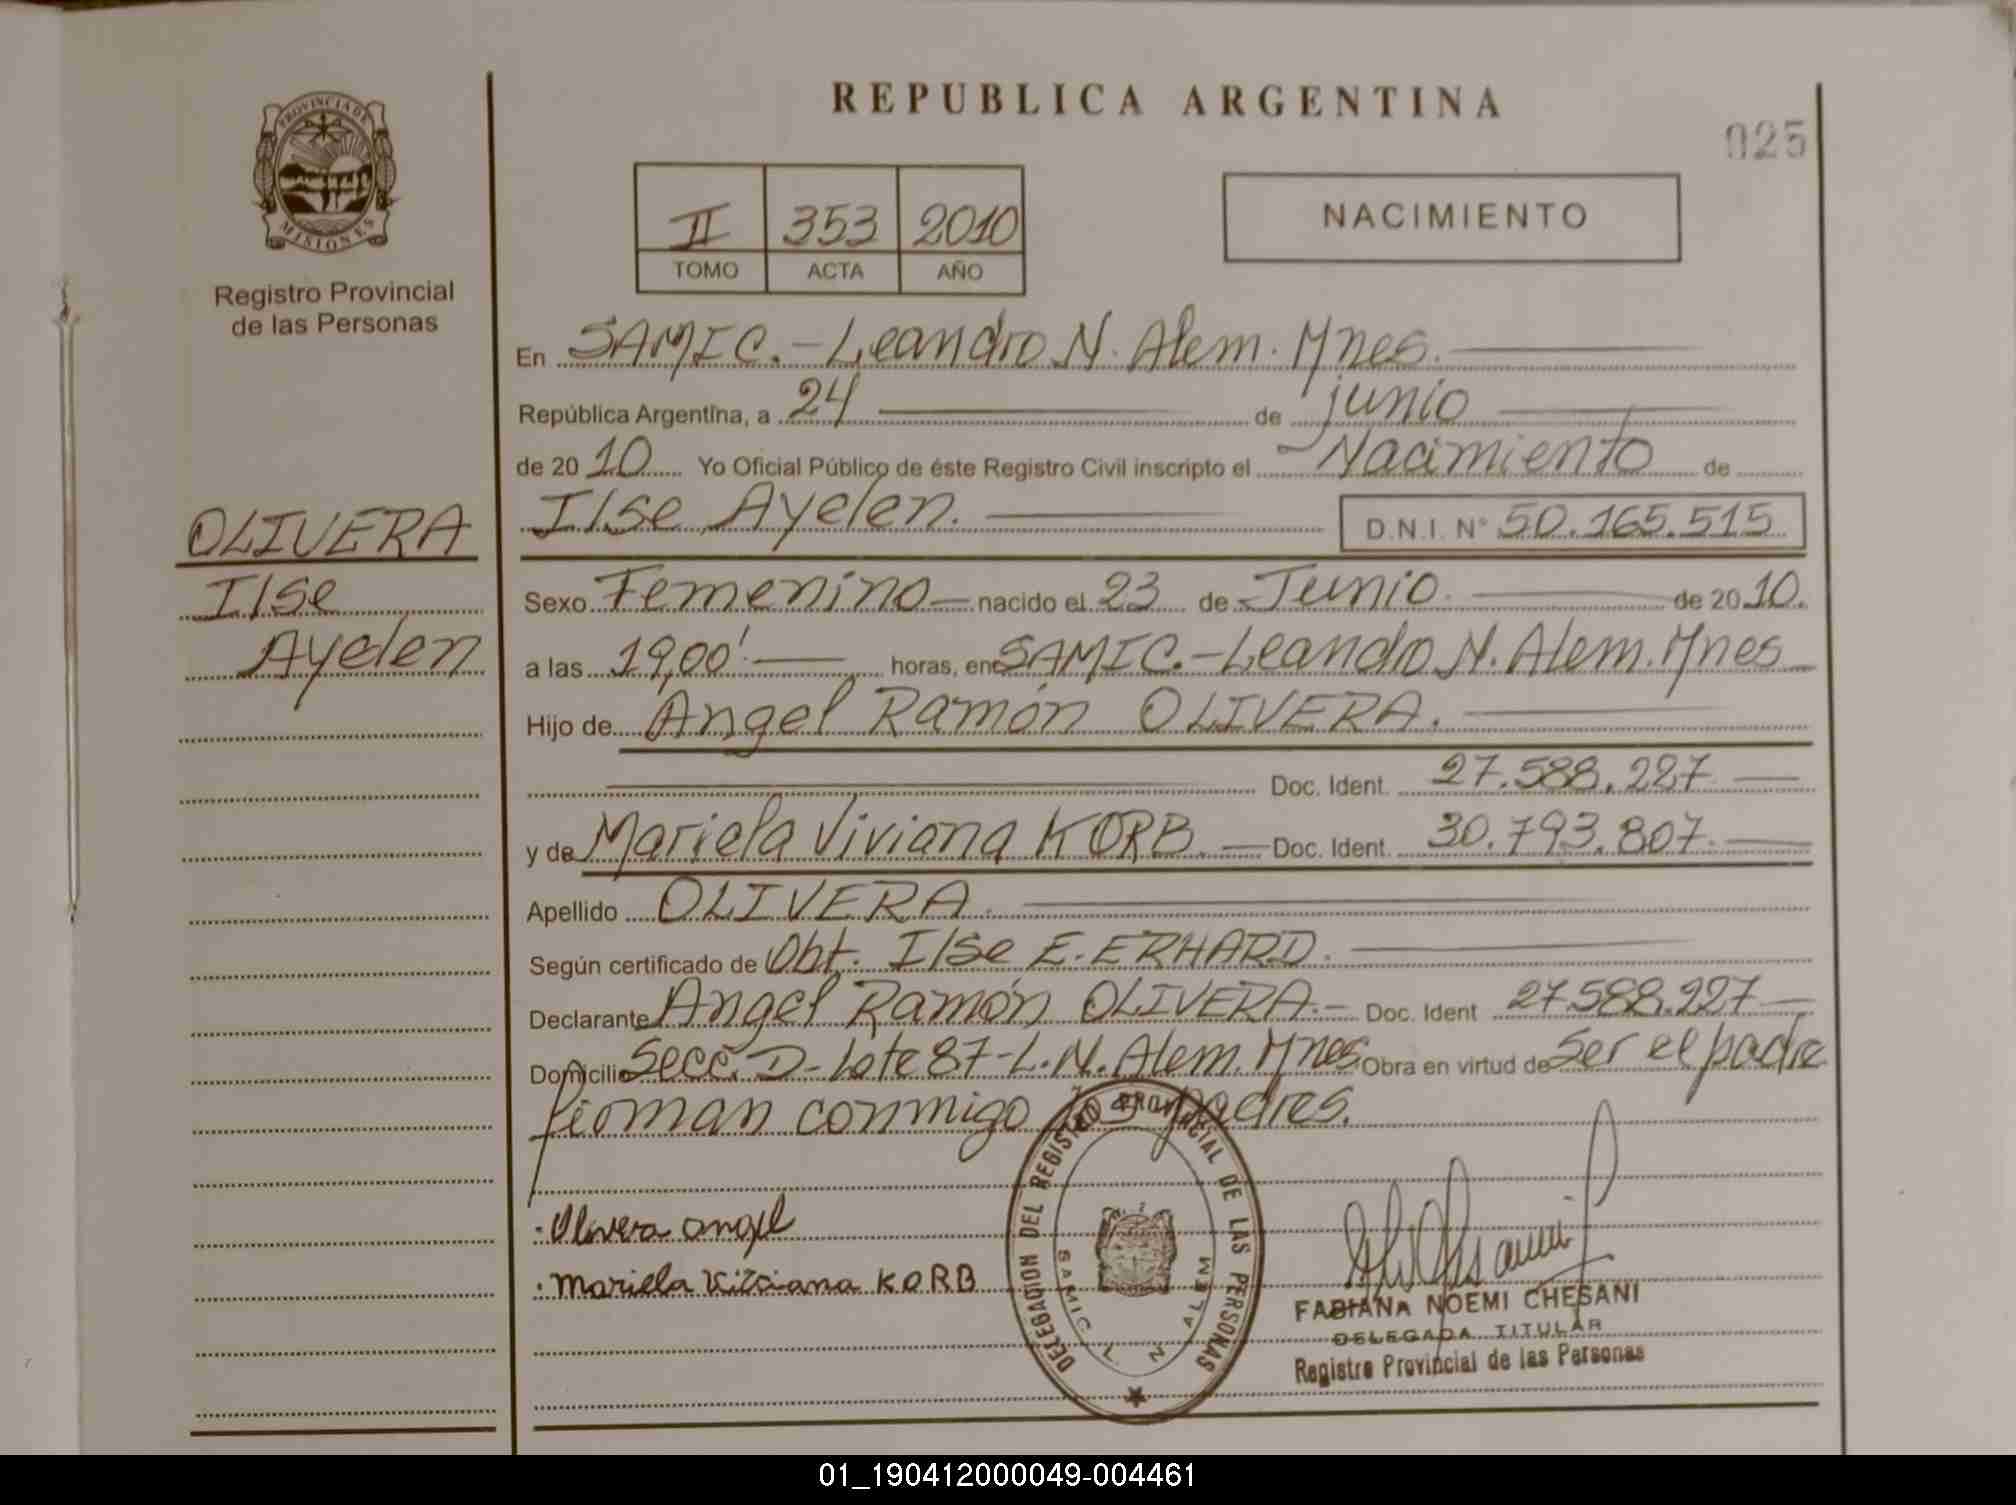 PROVINCIA DE
MISIONES
Registro Provincial
de las Personas
OLIVERA
Ilse
Ayelen
REPUBLICA ARGENTINA
025
II 353 2010
TOMO ACTA AÑO
NACIMIENTO
En SAMIC.-Leandro N. Alem. Mnes.
República Argentina, a 24 de junio
de 2010 Yo Oficial Público de éste Registro Civil inscripto el Nacimiento de
Ilse Ayelen. D.N.I. N° 50.165.515
Sexo Femenino nacido el 23 de Junio. de 2010.
a las 19,00' horas, en SAMIC.-Leandro N. Alem. Mnes
Hijo de Angel Ramón OLIVERA.
Doc. Ident. 27.588.227
y de Mariela Viviana KORB. Doc. Ident. 30.793.807.
Apellido OLIVERA.
Según certificado de Obt. Ilse E. ERHARD.
Declarante Angel Ramón OLIVERA.- Doc. Ident 27.588.227
Domicilio Secc. D-Lote 87-L.N. Alem. Mnes Obra en virtud de Ser el padre
firman conmigo los padres.
Olivera angel
Mariela Viviana KORB
DELEGACION DEL REGISTRO PROVINCIAL DE LAS PERSONAS
SAMIC L. N. ALEM
FABIANA NOEMI CHESANI
DELEGADA TITULAR
Registro Provincial de las Personas
01_190412000049-004461